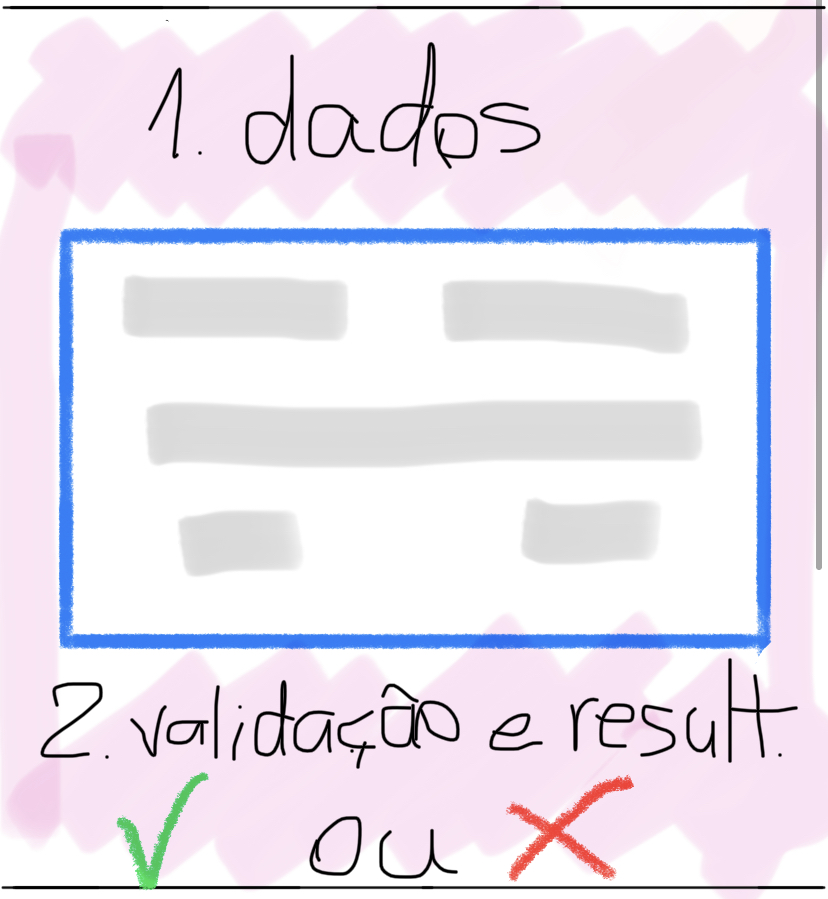 1. dados
2. validação e result.
ou